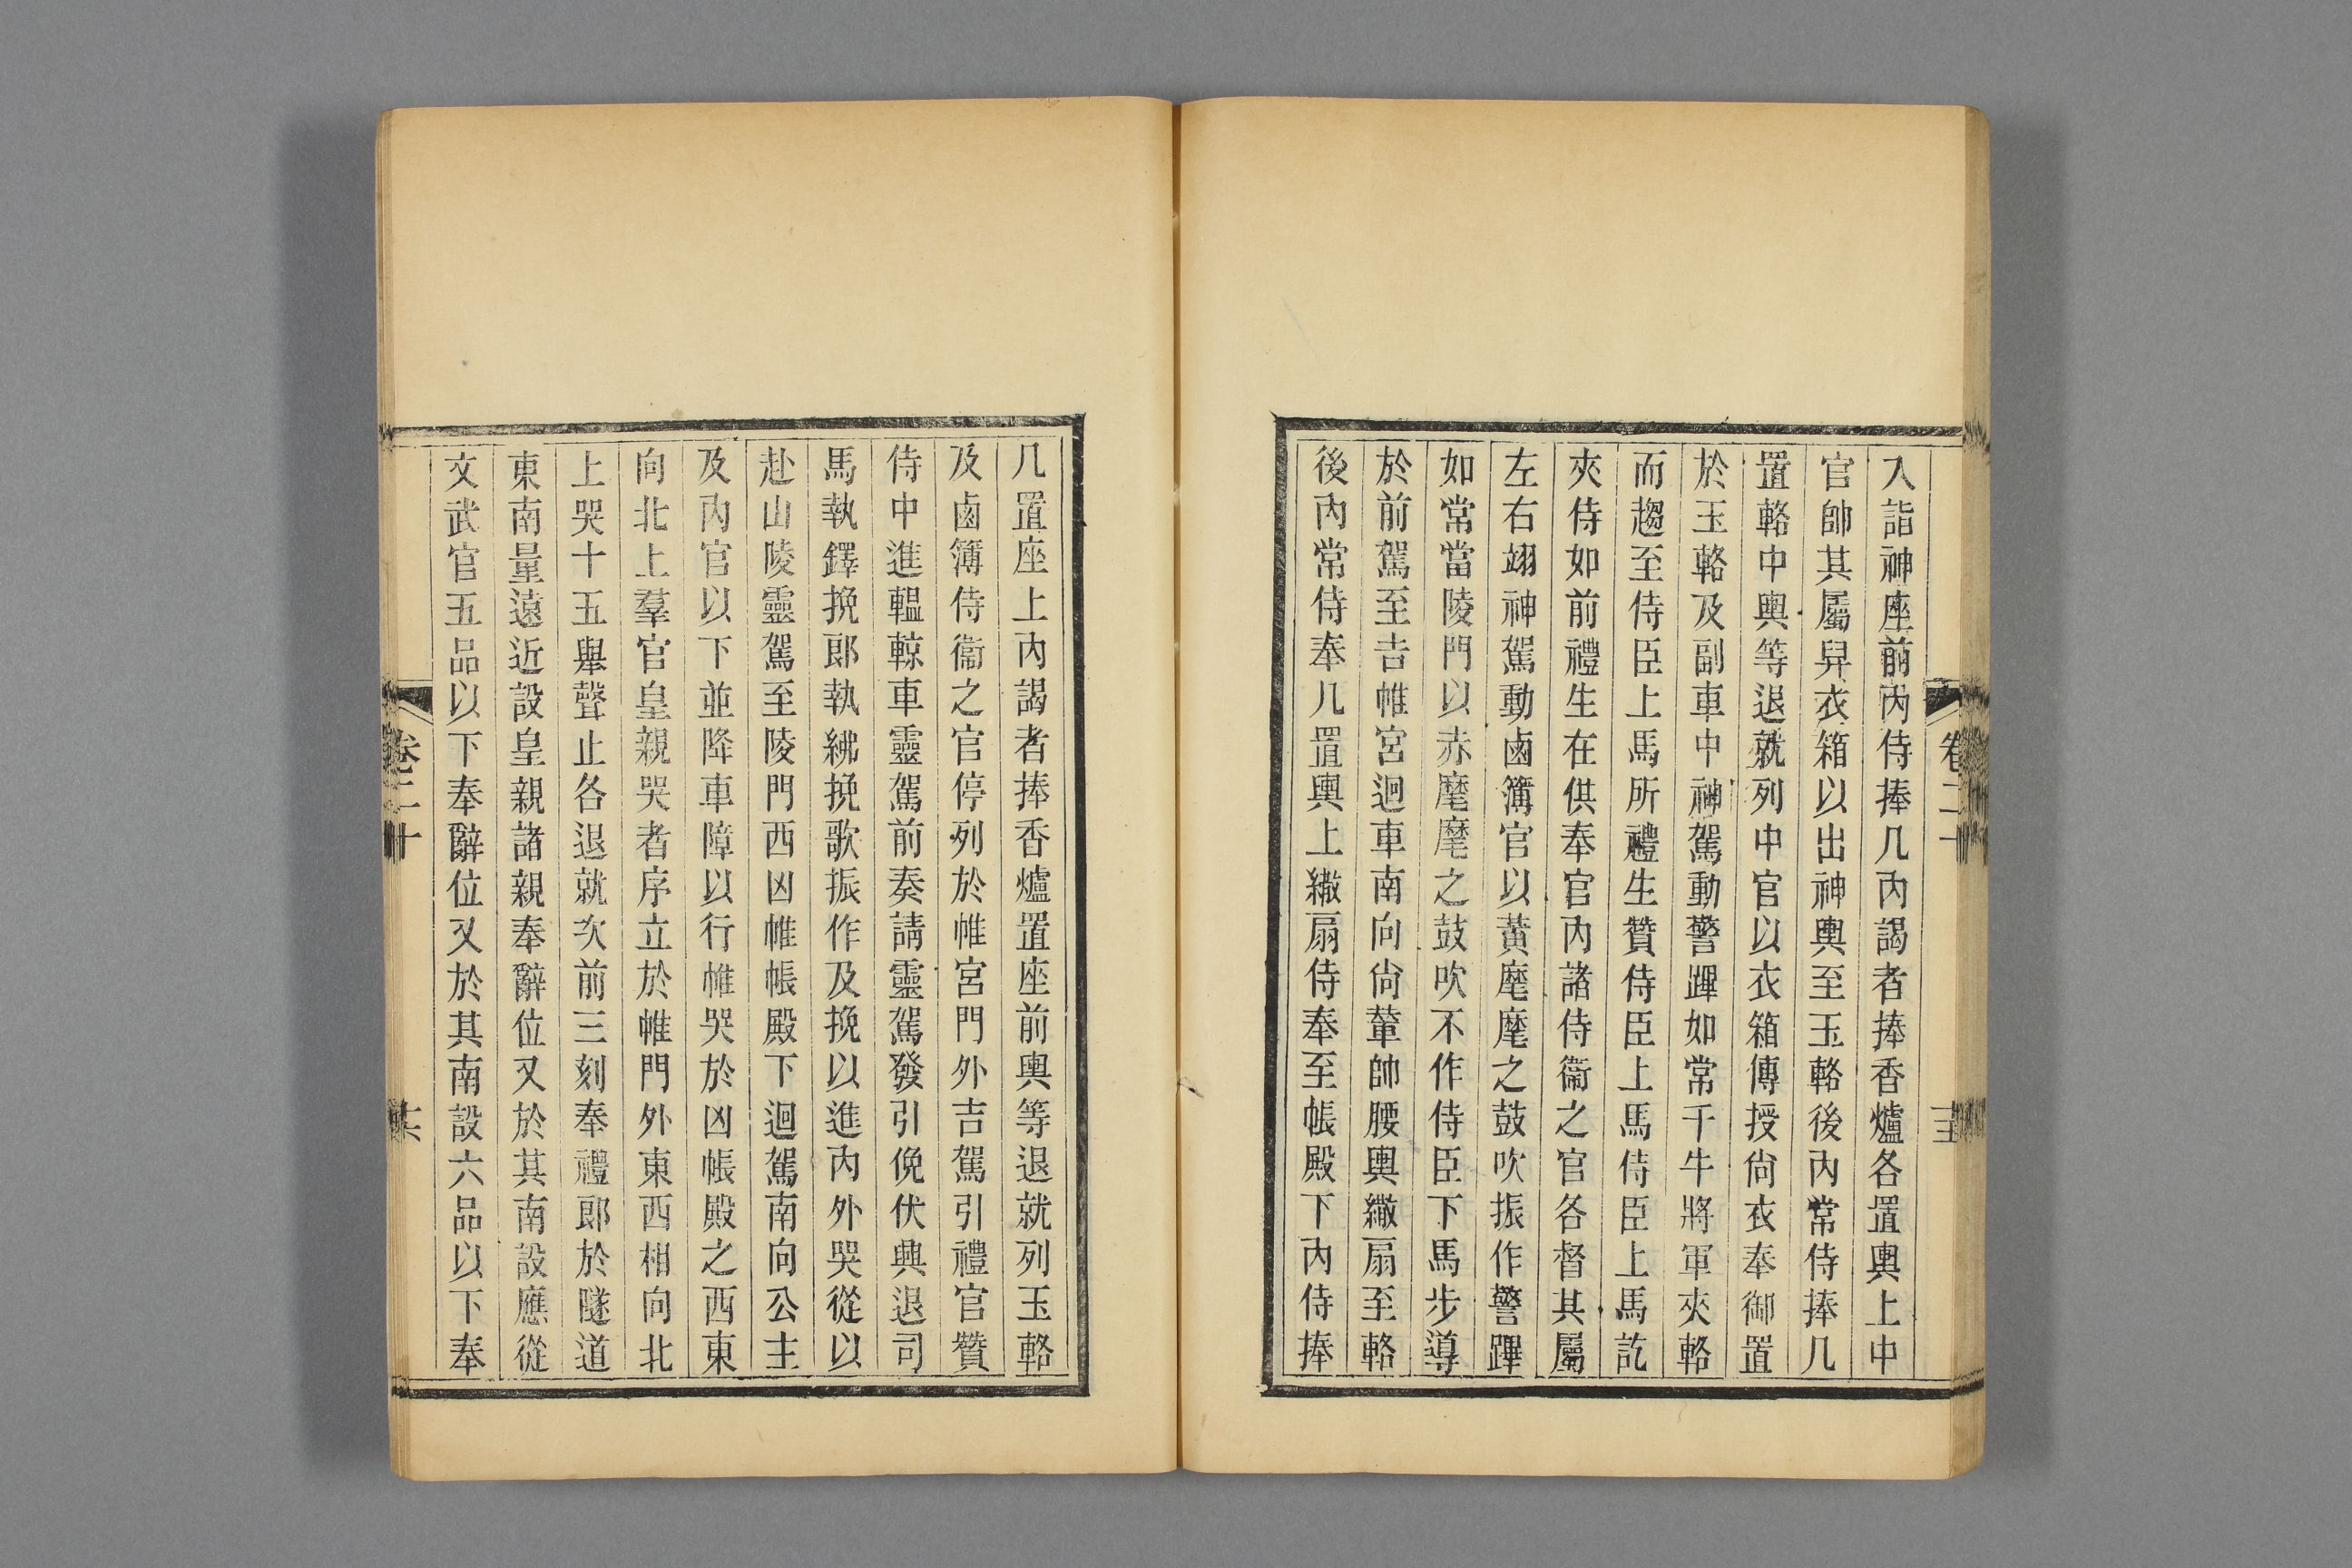 卷二十
入詣神座前內侍捧几內謁者捧香爐各置輿上中
官帥其屬舁衣箱以出神輿至玉輅後內常侍捧几
置輅中輿等退就列中官以衣箱傳授尙衣奉御置
於玉輅及副車中神駕動警蹕如常千牛將軍夾輅
而趨至侍臣上馬所禮生贊侍臣上馬侍臣上馬訖
夾侍如前禮生在供奉官內諸侍衞之官各督其屬
左右翊神駕動鹵簿官以黃麾麾之鼓吹振作警蹕
如常當陵門以赤麾麾之鼓吹不作侍臣下馬步導
於前駕至吉帷宮迴車南向尙輦帥腰輿繖扇至輅
後內常侍奉几置輿上繖扇侍奉至帳殿下內侍捧
几置座上內謁者捧香爐置座前輿等退就列玉輅
及鹵簿侍衞之官停列於帷宮門外吉駕引禮官贊
侍中進轀輬車靈駕前奏請靈駕發引俛伏興退司
馬執鐸挽郎執紼挽歌振作及挽以進內外哭從以
赴山陵靈駕至陵門西凶帷帳殿下迴駕南向公主
及內官以下並降車障以行帷哭於凶帳殿之西東
向北上羣官皇親哭者序立於帷門外東西相向北
上哭十五舉聲止各退就次前三刻奉禮郎於隧道
東南量遠近設皇親諸親奉辭位又於其南設應從
文武官五品以下奉辭位又於其南設六品以下奉
卷二十